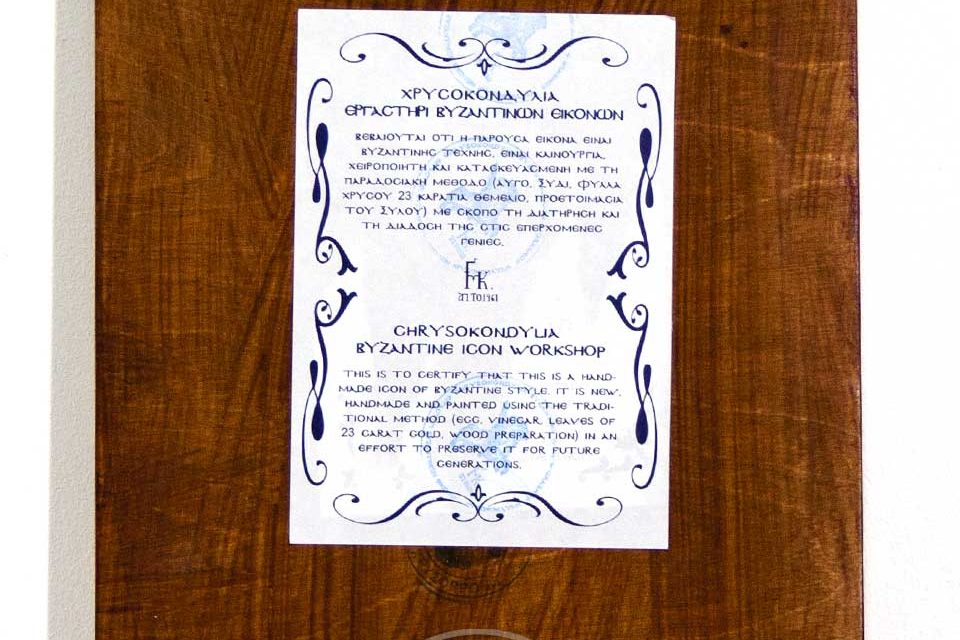 ΧΡΥCΟΚΟΝΔΥΛΙΑ
ΕΡΓΑCΤΗΡΙ ΒΥΖΑΝΤΙΝΩΝ ΕΙΚΟΝΩΝ
ΒΕΒΑΙΟΥΤΑΙ ΟΤΙ Η ΠΑΡΟΥCΑ ΕΙΚΟΝΑ ΕΙΝΑΙ
ΒΥΖΑΝΤΙΝΗC ΤΕΧΝΗC, ΕΙΝΑΙ ΚΑΙΝΟΥΡΓΙΑ,
ΧΕΙΡΟΠΟΙΗΤΗ ΚΑΙ ΚΑΤΑCΚΕΥΑCΜΕΝΗ ΜΕ ΤΗ
ΠΑΡΑΔΟCΙΑΚΗ ΜΕΘΟΔΟ (ΑΥΓΟ, ΞΥΔΙ, ΦΥΛΛΑ
ΧΡΥCΟΥ 23 ΚΑΡΑΤΙΑ ΘΕΜΕΛΙΟ, ΠΡΟΕΤΟΙΜΑCΙΑ
ΤΟΥ ΞΥΛΟΥ) ΜΕ CΚΟΠΟ ΤΗ ΔΙΑΤΗΡΗCΗ ΚΑΙ
ΤΗ ΔΙΑΔΟCΗ ΤΗC CΤΙC ΕΠΕΡΧΟΜΕΝΕC
ΓΕΝΙΕC.
CHRYSOKONDYLIA
BYZANTINE ICON WORKSHOP
THIS IS TO CERTIFY THAT THIS IS A HAND-
MADE ICON OF BYZANTINE STYLE. IT IS NEW,
HANDMADE AND PAINTED USING THE TRADI-
TIONAL METHOD (EGG, VINEGAR, LEAVES OF
23 CARAT GOLD, WOOD PREPARATION) IN AN
EFFORT TO PRESERVE IT FOR FUTURE
GENERATIONS.